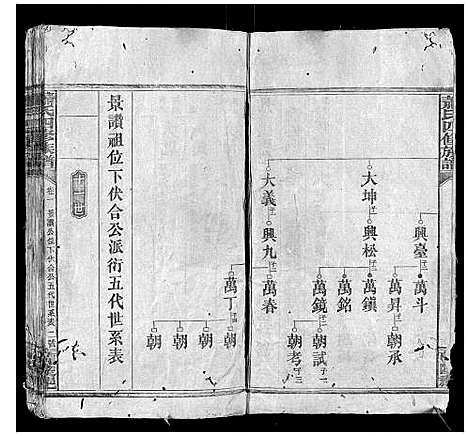 氏四修族譜
興臺
萬斗
萬昇
朝承
大坤
興松
萬鎮
萬銘
萬鏡
朝試
朝考
大義
興九
萬春
萬丁
朝
朝
朝
朝
景讚祖位下伏合公派衍五代世系表
十一世
氏四修族譜
卷一 景讚公位下伏合公五代世系表